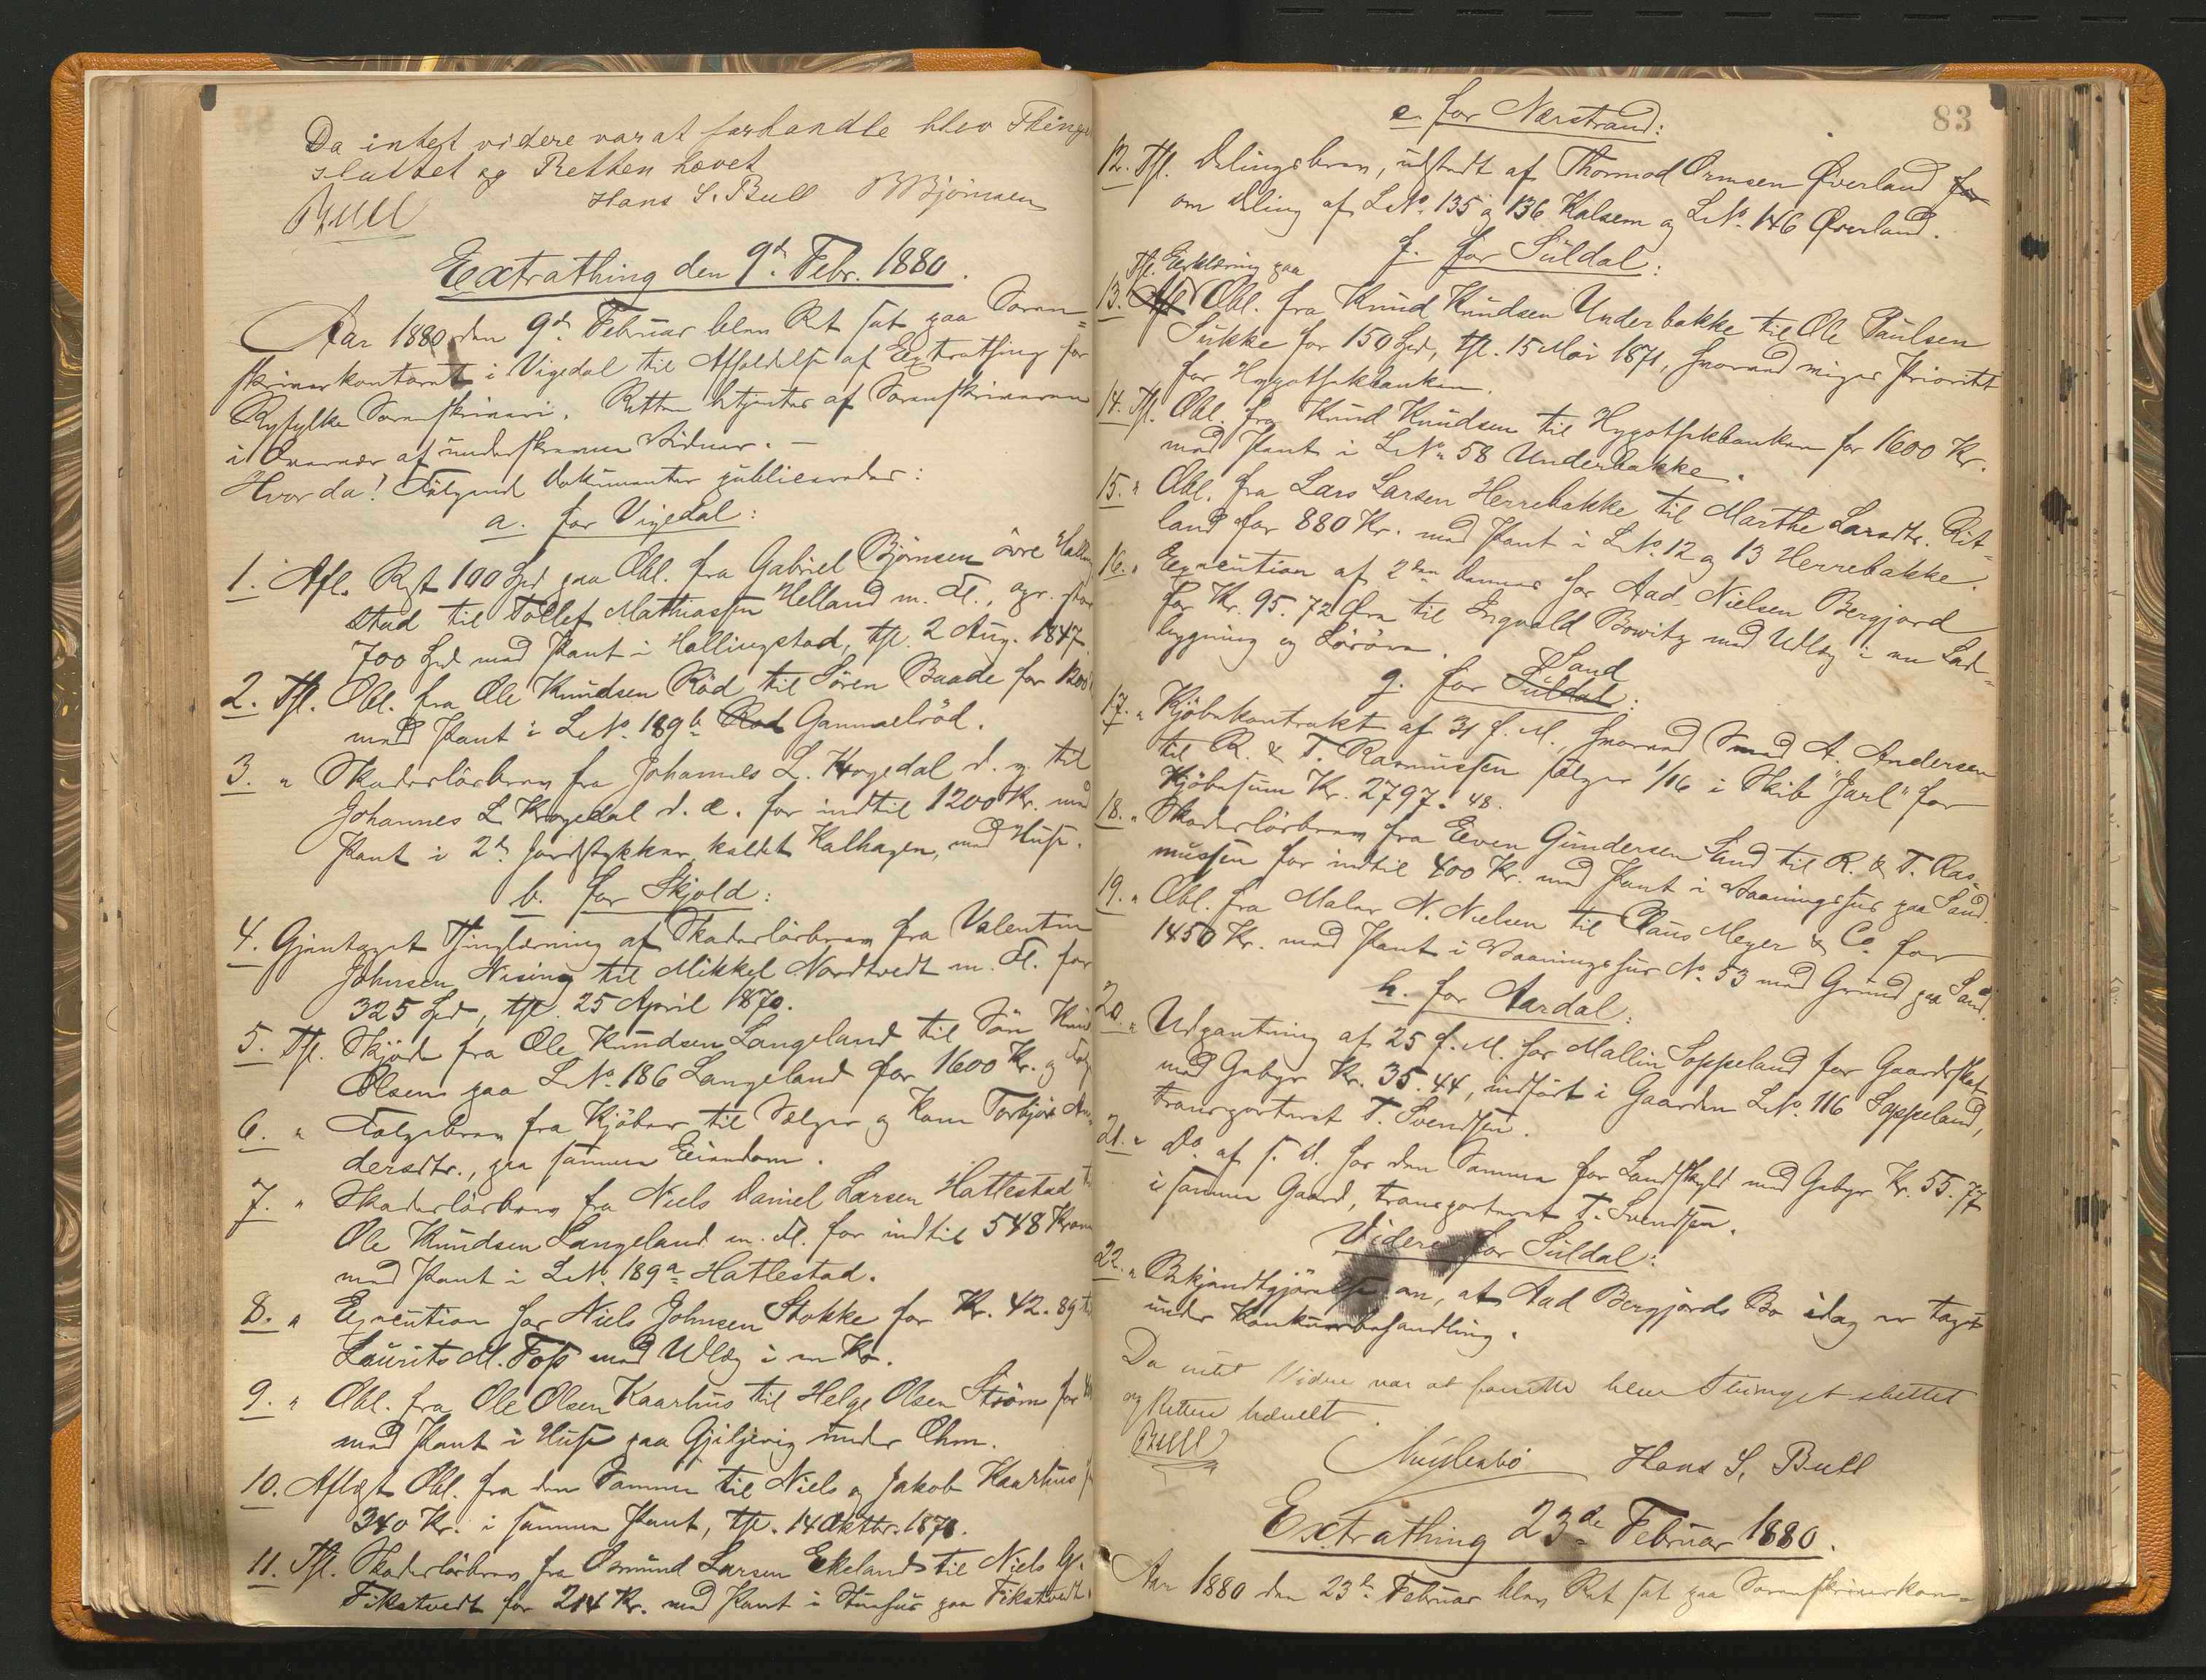 Da intet videre var at forhandle blev Thinget
sluttet og Retten hævet
Hans S. Bull BBjörnsen
Bull
Extrathing den 9d. Febr. 1880.
Aar 1880 den 9d. Februar blev Ret sat paa Soren=
skriverkontoret i Vigedal til Afholdelse af Extrathing for
Ryfylke Sorenskriveri. Retten betjentes af Sorenskriveren
i Overvær af underskrevne Vidner. –
Hvor da! Følgende Dokumenter publiceredes:
a. for Vigedal:
1. Afl. Rest 100 Spd paa Obl. fra Gabriel Björnsen övre Halling
stad til Tollef Mathiassen Helland m. Fl., opr. stor
700 Spd med Pant i Hallingstad, tgl. 2 Aug. 1847.
2. Tgl. Obl. fra Ole Knudsen Röd til Sören Baade for 1200
med Pant i LNo. 189b Rød Gammelröd.
3. " Skadeslösbrev fra Johannes L. Krogedal d. y. til
Johannes L. Krogedal d. æ. for indtil 1200 Kr. med
Pant i 2de Jordstykker, kaldet Kalhagen, med Huse.
b. for Skjold:
4. Gjentaget Thinglæsning af Skadeslösbrev fra Valentin
Johnsen Nising til Mikkel Nordtvedt m. Fl. for
325 Spd, tgl. 25 April 1870.
5. Tgl. Skjöde fra Ole Knudsen Langeland til Sön Knud
Olsen paa LNo. 186 Langeland for 1600 Kr. og Folge
6. " Folgebrev fra Kjöber til Sælger og Kone Torbjör An=
dersdtr., paa samme Eiendom.
7. " Skadeslösbrev fra Niels Daniel Larsen Hatlestad til
Ole Knudsen Langeland m. Fl. for indtil 548 Kroner
med Pant i LNo. 189a Hatlestad.
8. " Execution hos Niels Johnsen Stokke for Kr. 42.89 til
Laurits M. Foss med Udlæg i en Ko.
9. " Obl. fra Ole Olsen Kaarhus til Helge Olsen Ström for
med Pant i Huse paa Gjiljevig under Ohm.
10. Aflagt Obl. fra den Samme til Niels og Jakob Kaarhus
340 Kr. i samme Pant, tgl. 14 Oktbr. 1878.
11. Tgl. Skadeslösbrev fra Osmund Larsen Ekeland til Niels G.
Fikstvedt for 214 Kr. med Pant i Stuehus paa Fikstvedt.
83
e. for Nærstrand:
12. Tgl. Delingsbrev, udstedt af Thormod Ormsen Øverland for
om Deling af LNo. 135 og 136 Kalsem og LNo. 146 Øverland.
f. for Suldal:
Tgl. Erklæring paa
13. Afl Obl. fra Knud Knudsen Underbakke til Ole Paulsen
Sukke for 150 Spd, tgl. 15 Mai 1871, hvorved viges Prioritet
for Hypothekbanken.
14. Tgl. Obl. fra Knud Knudsen til Hypothekbanken for 1600 Kr.
med Pant i LNo 58 Underbakke.
15. " Obl. fra Lars Larsen Herrebakke til Marthe Larsdtr. Rit=
land for 880 Kr. med Pant i LNo. 12 og 13 Herrebakke.
16. " Execution af 2den Dennes hos Aad Nielsen Bergjord
for Kr. 95.72 Øre til Ingvald Bowitz med Udlæg i en Lad=
bygning og Löröre.
g. for Suldal Sand:
17. " Kjöbekontrakt af 31 f. M., hvorved Smed A. Andersen
til R. & T. Rasmussen sælger 1/16 i Skib "Jarl" for
Kjöbesum Kr. 2797.48.
18. " Skadeslösbrev fra Even Gundersen Sand til R. & T. Ras=
mussen for indtil 400 Kr. med Pant i Vaaningshus paa Sand.
19. " Obl. fra Maler N. Nielsen til Claus Meyer & Co. for
1450 Kr. med Pant i Vaaningshus No. 53 med Grund paa Sand.
h. for Aardal:
20. " Udpantning af 25 f. M. hos Mallin Soppeland for Gaardskat
med Gebyr Kr. 35.44, indfört i Gaarden LNo. 116 Soppeland,
transporteret T. Svendsen.
21. " Do. af s. D. hos den Samme for Landskyld med Gebyr Kr. 55.77
i samme Gaard, transporteret T. Svendsen.
Videre for Suldal:
22. " Bekjendtgjörelse om, at Aad Bergjords Bo idag er taget
under Konkursbehandling.
Da intet Videre var at foretta blev Thinget sluttet
og Retten hævelt.
Bull
Hans S. Bull
Extrathing 23de Februar 1880.
Aar 1880 den 23de Februar blev Ret sat paa Sorenskriverkon=